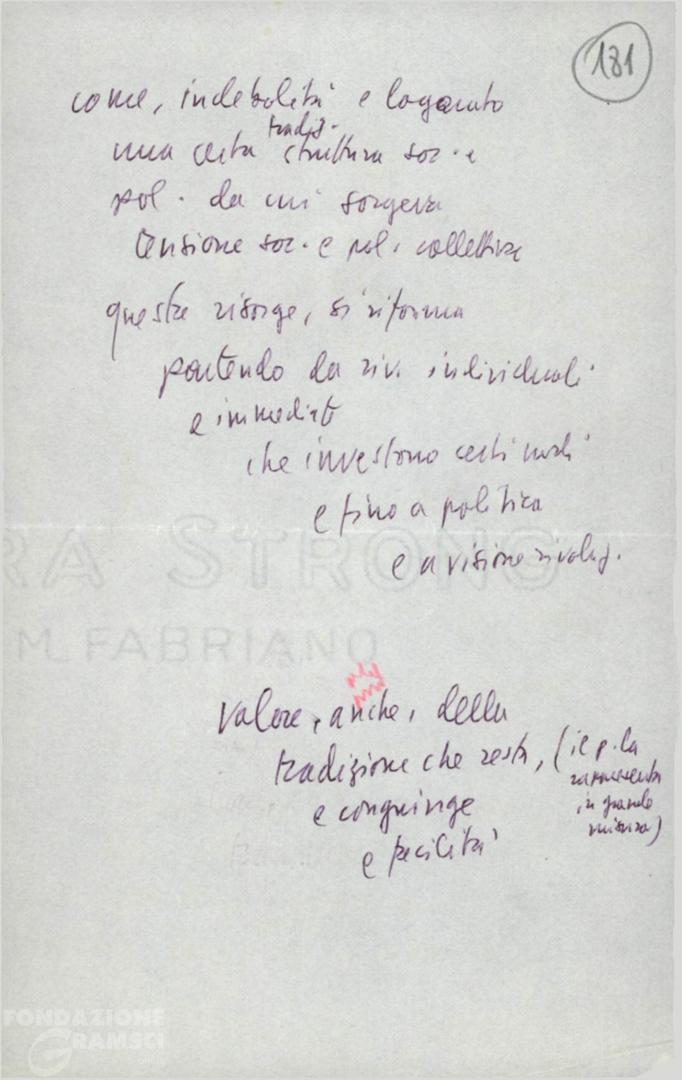 181
come, indebolita e logorato
tradiz.
una certa struttura soc. e
pol. da cui sorgeva
tensione soc. e pol. collettiva
questa risorge, si riforma
partendo da riv. individuali
e immediate
che investono certi nodi
e fino a politica
e a visione rivoluz.
RA STRONG
M. FABRIANO
valore, anche, della
tradizione che resta, (il p. la
rappresenta
in grande
misura)
e congiunge
e facilità
FONDAZIONE
GRAMSCI